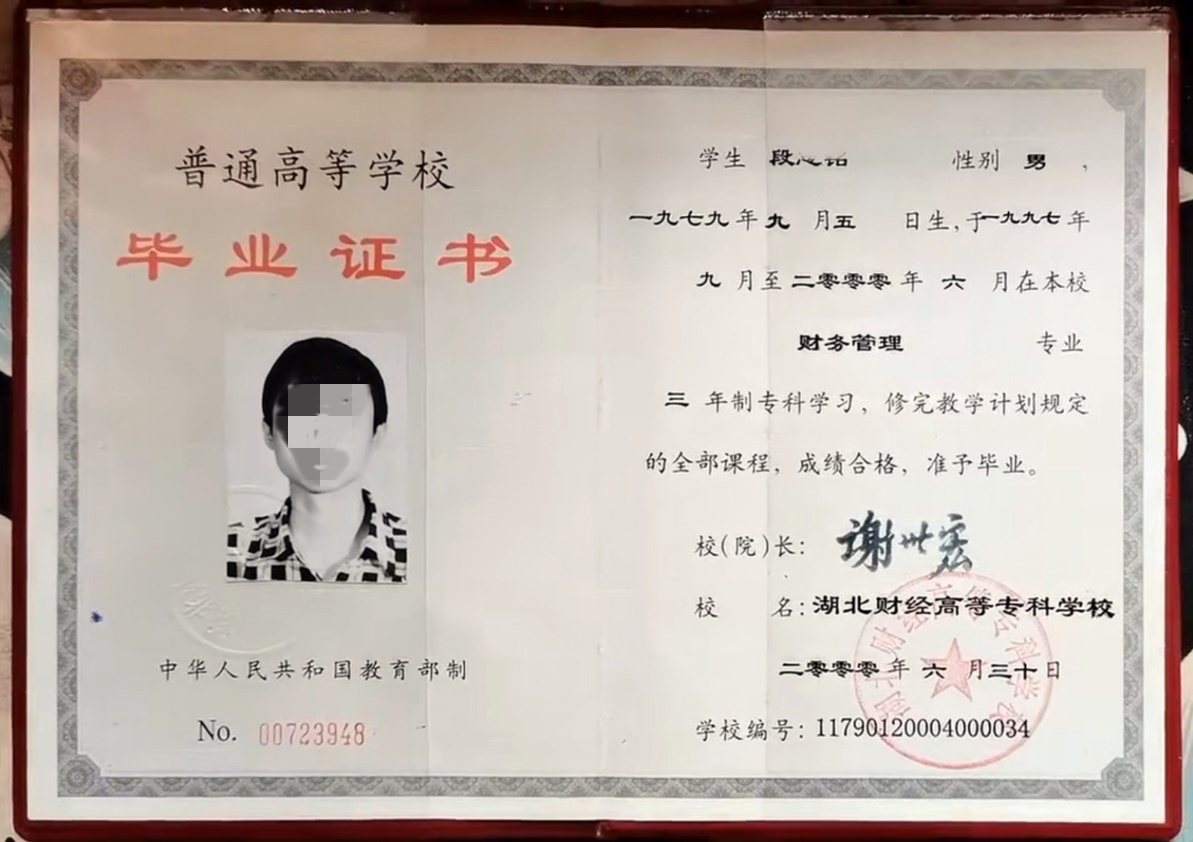 普通高等学校
毕业证书
中华人民共和国教育部制
No. 00723948
学生 段 铭 性别 男，
一九七九年九月五日生，于一九九七年
九月至二零零零年六月在本校
财务管理 专业
三年制专科学习，修完教学计划规定
的全部课程，成绩合格，准予毕业。
校(院)长：谢世宏
校 名：湖北财经高等专科学校
二零零零年六月三十日
学校编号：11790120004000034
湖北财经高等专科学校